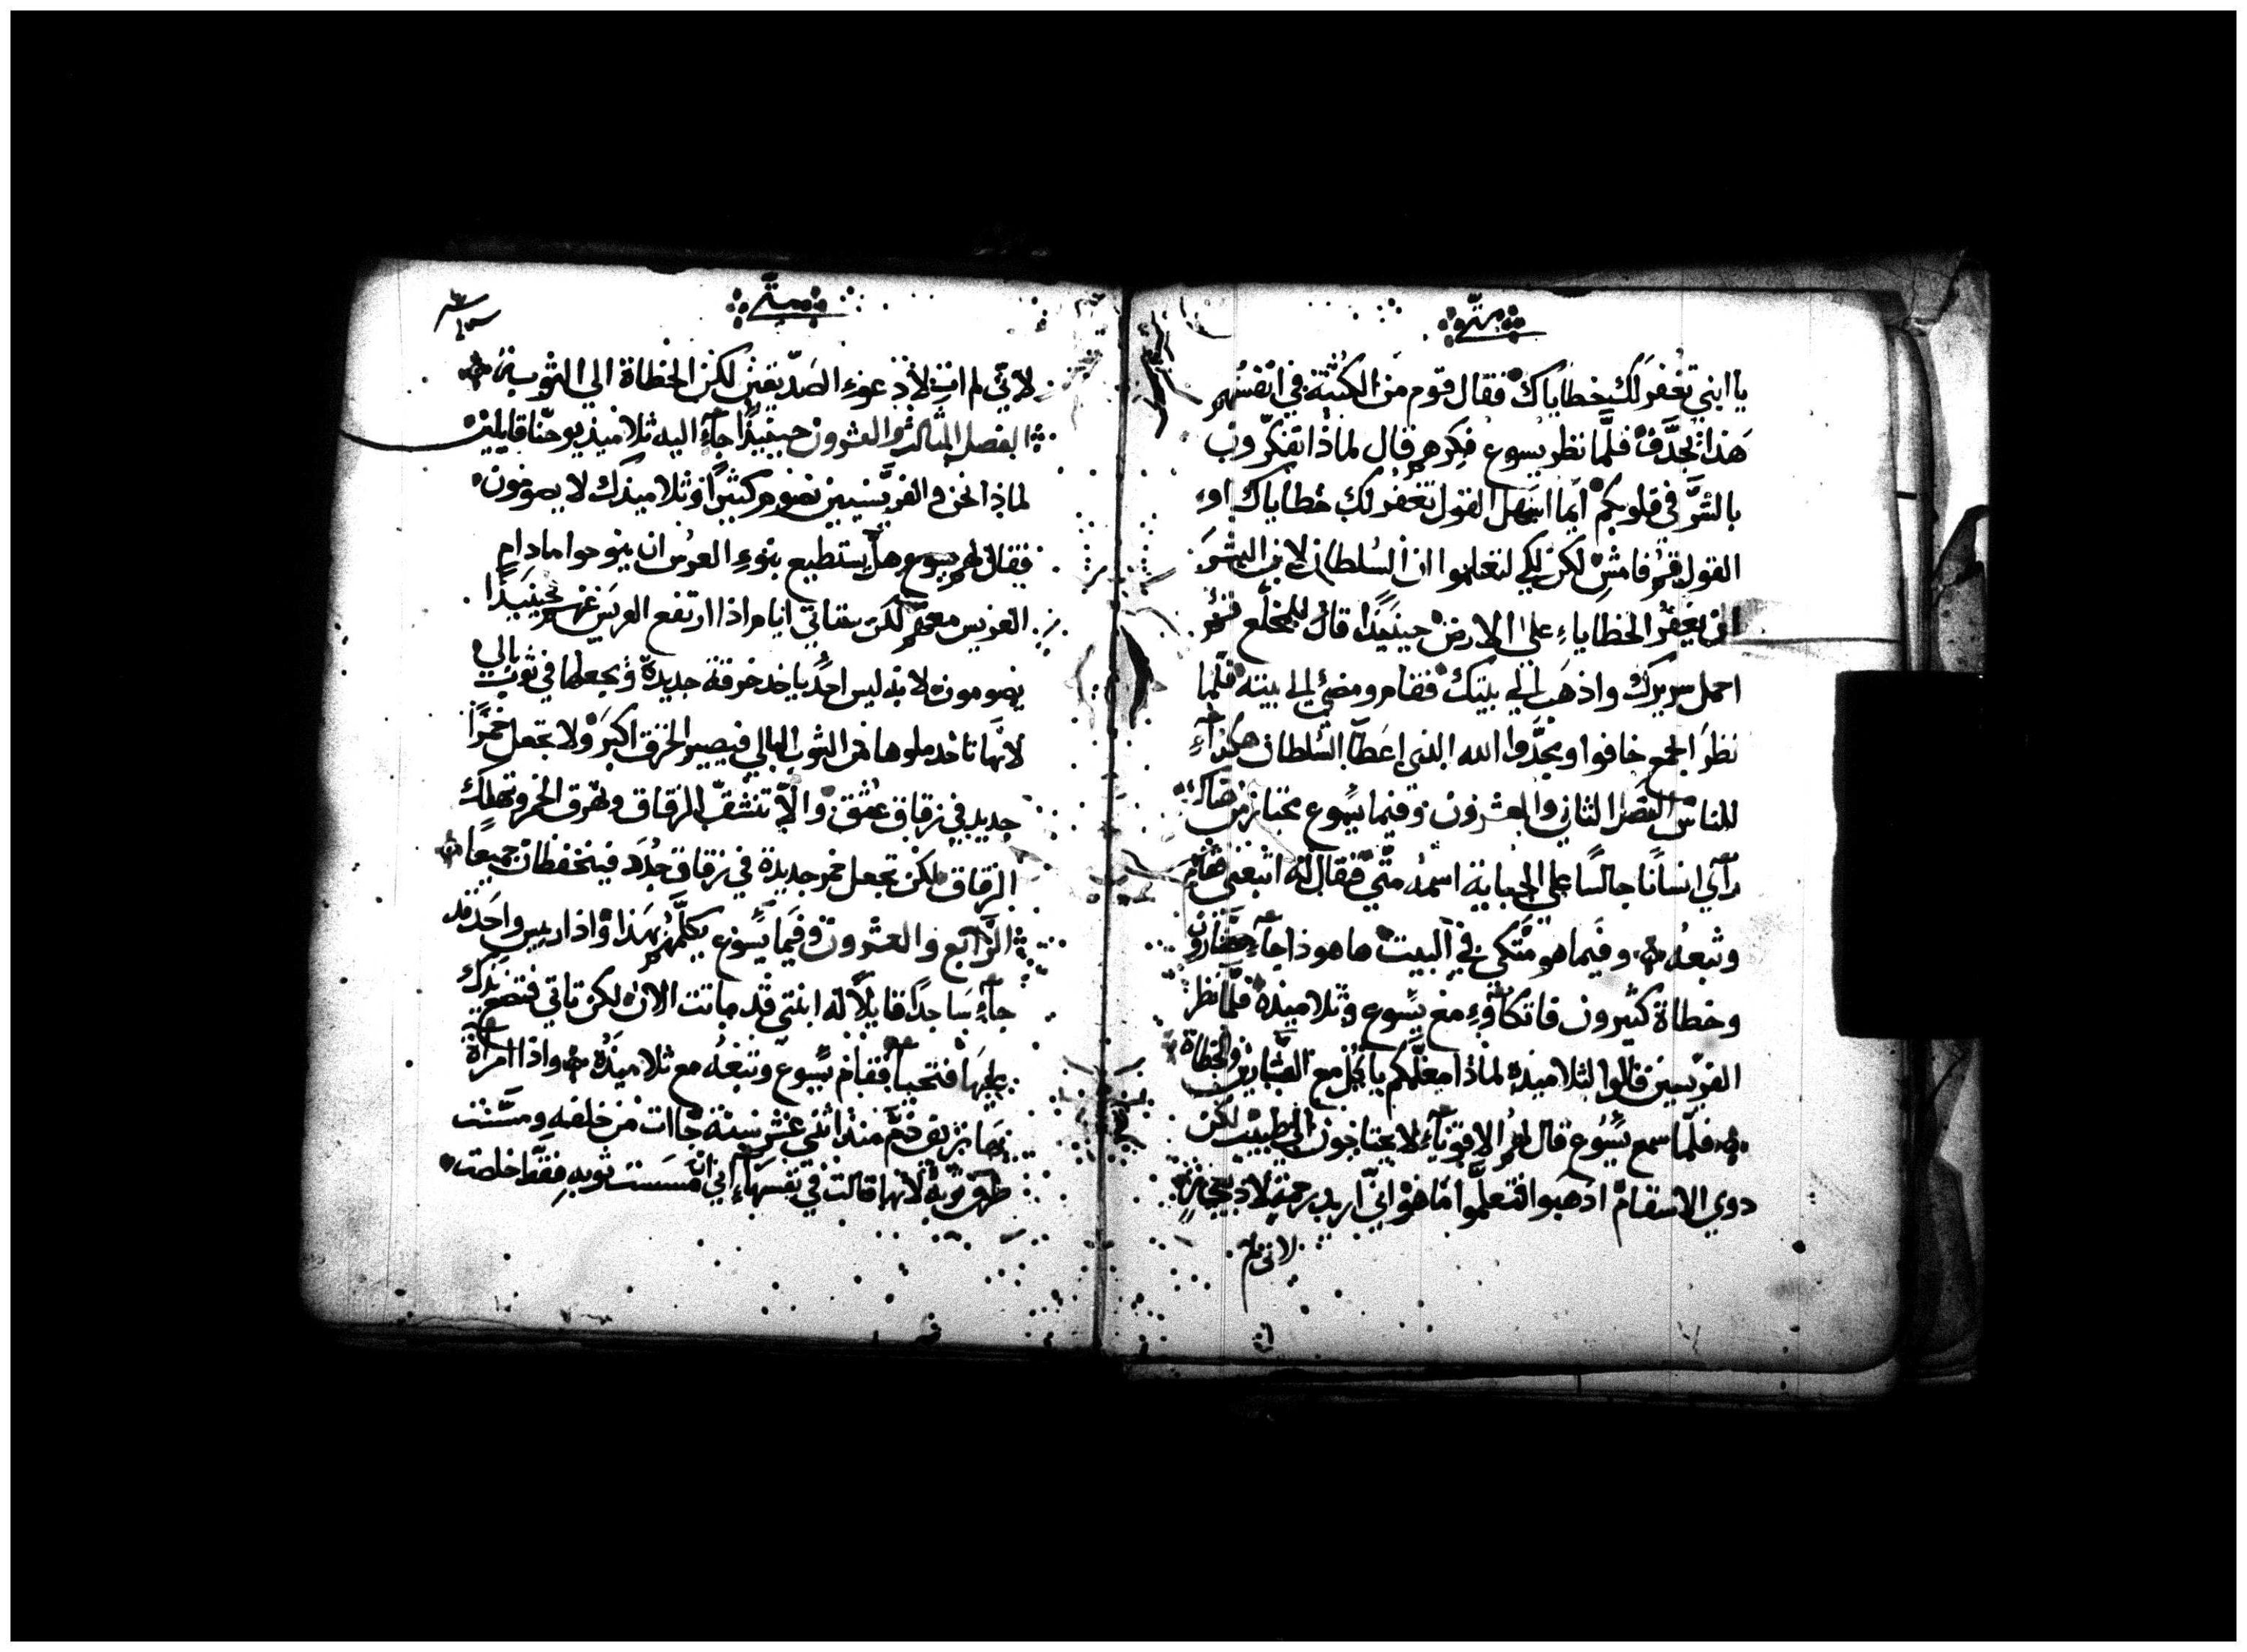 متى
يا ابني تغفر لك خطاياك فقال قوم من الكتبة في انفسهم
هذا يجدّف فلمّا نظر يسوع فكرهم قال لماذا تفكّرون
بالشرّ في قلوبكم ايّما اسهل القول تغفر لك خطاياك او
القول قم فامش لكن لكي لتعلموا ان السلطان لابن البشر
ان يغفر الخطاياء على الارض حينيذا قال للمخلّع قم
احمل سريرك واذهب الي بيتك فقام ومضي الي بيته فلما
نظر الجمع خافوا ومجّدوا الله الذي اعطا السلطان هكذا
للناس الفصل الثاني والعشرون وفيما يسوع مجتاز من هناك
رآي انسانا جالسا علي الجباية اسمه متي فقال له اتبعني فقام
وتبعه وفيما هو متكي في البيت ها هوذا جآء عشارون
وخطاة كثيرون فاتكاوء مع يسوع وتلاميذه فلمّا نظر
الفريسين قالوا لتلاميذه لماذا معلّمكم ياكل مع العشارين والخطاة
فلمّا سمع يسوع قال لهم الاقويآء لا يحتاجون الي طبيب لكن
دوي الاسقام اذهبوا فتعلّموا ما هو انّي اريد رحمة لا ذبيحة
لاني لم
متى
لانّي لم ات لادعوء الصدّيقين لكن الخطاة الي التوبة
الفصل الثالث والعشرون حينيذا جآء اليه تلاميذ يوحنّا قايلين
لماذا نحن والفريسيين نصوم كثيرا وتلاميذك لا يصومون
فقال لهم يسوع هل يستطيع بنوء العرس ان ينوحوا ما دام
العريس معهم لكن ستاتي ايام اذا ارتفع العريس عنهم حينيذا
يصومون لانه ليس احد ياخد خرقة جديدة ويجعلها في ثوب بالي
لانّها تاخد ملوها من الثوب البالي فيصير الخرق اكبر ولا تجعل خمرا
جديد في زقاق عتق والّا تنشقّ الزقاق وتهرق الخمر وتهلك
الزقاق لكن تجعل خمر جديدة في زقاق جدد فينحفظان جميعا
الرّابع والعشرون وفيما يسوع يكلّمهم بهذا واذا رييس واحد قد
جآء ساجدا قايلا له ابنتي قد ماتت الان لكن تاتي فتضع يدك
عليها فتحيا فقام يسوع وتبعه مع تلاميذه واذا امرآة
بها نزيف دم منذ اثني عشر سنة جاات من خلفه ومسّت
طرف ثوبه لانها قالت في نفسها اني ان مسست ثوبه فقط خلصت